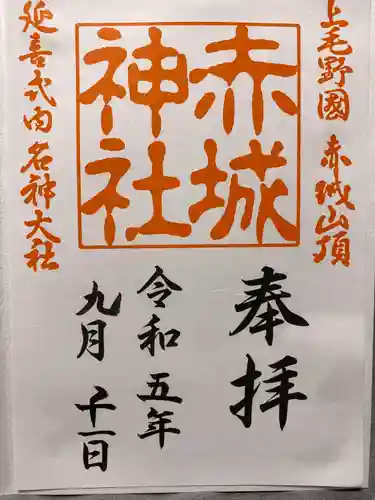 上毛野國 赤城山頂
赤城
神社
延喜式内名神大社
奉拝
令和五年
九月二十一日